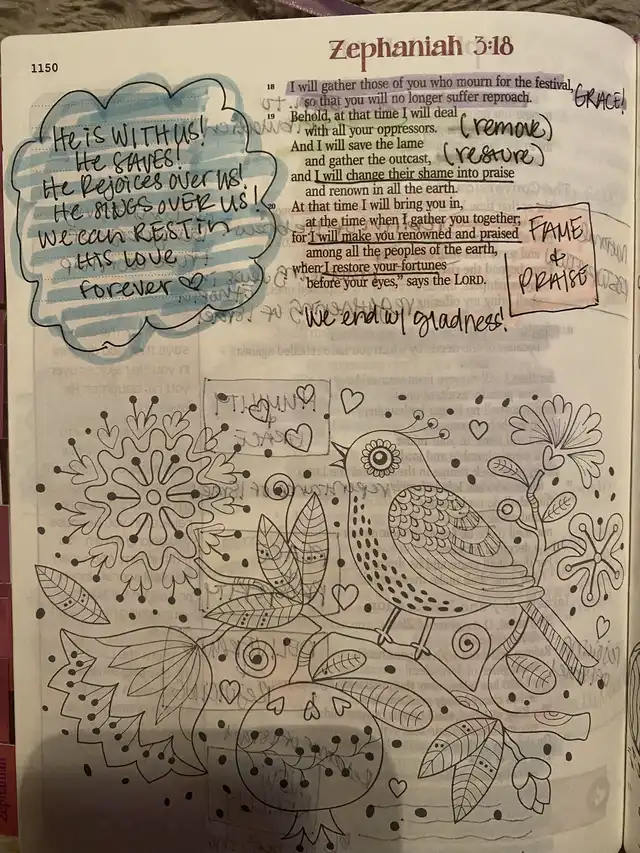 1150
Zephaniah 3:18
18 I will gather those of you who mourn for the festival,
so that you will no longer suffer reproach.
GRACE!
19 Behold, at that time I will deal
with all your oppressors. (remove)
And I will save the lame
and gather the outcast, (restore)
and I will change their shame into praise
and renown in all the earth.
20 At that time I will bring you in,
at the time when I gather you together;
for I will make you renowned and praised
among all the peoples of the earth,
when I restore your fortunes
before your eyes,” says the LORD.
FAME
&
PRAISE
We end w/ gladness!
He is WITH US!
He SAVES!
He Rejoices over us!
He SINGS OVER US!
We can REST in
HIS LOVE
forever ♡
Zephaniah